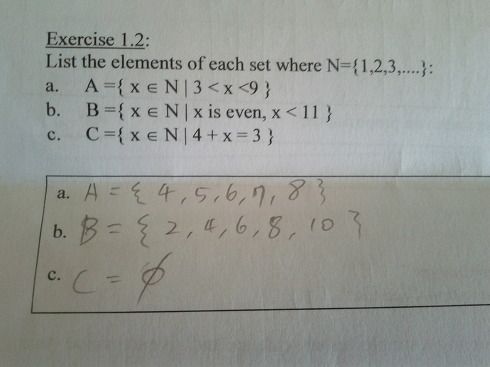 Exercise 1.2:
List the elements of each set where N={1,2,3,....}:
a. A={ x ∈ N | 3 < x <9 }
b. B={ x ∈ N | x is even, x < 11 }
c. C={ x ∈ N | 4 + x = 3 }
a. A = { 4, 5, 6, 7, 8 }
b. B = { 2, 4, 6, 8, 10 }
c. C = ∅